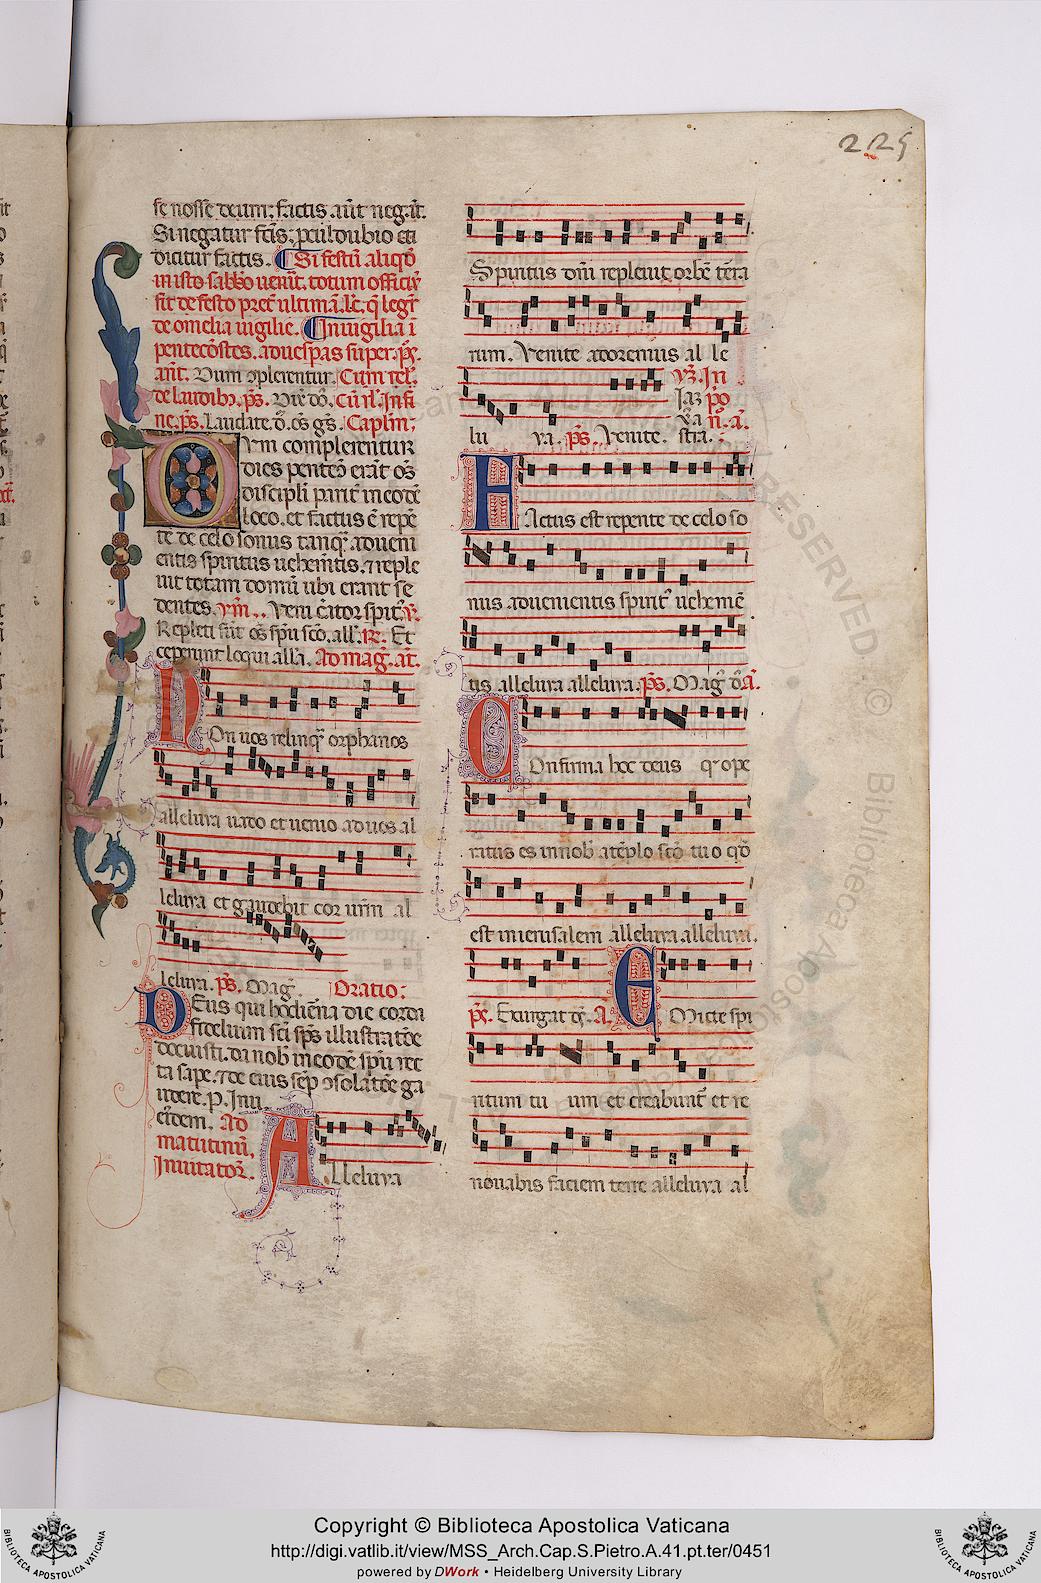 225
se nosse deum: factis aūt negāt.
Si negatur fcīs. pculdubio etī
dicitur factis. Si festū aliqđ
in isto sabbo uenit. totum officiū
fit de festo
de omelia uigilie. In uigilia ī
pentecostes. ad uesp̄as super. p̄s.
ant. Dum ɔplerentur. Cum rel̄.
de laudibȝ. p̄s.
ne. p̄s. Laudate. Caplm̄.
Cum complerentur
dies pentec̄ erāt oēs
discipli parit̄ in eodē
loco. et factus ē repē
te de celo sonus tanq̄ adueni
entis spiritus uehem̄tis. ⁊ reple
uit totam domū ubi erant se
dentes. ym̄. Veni c̄ator spirit̄. ꝟ.
Repleti sūt oēs sp̄u sc̄o. all̄a. ℞. Et
ceperunt loqui all̄a. Ad maḡ. at̄.
Non uos relinq̄ orphanos
alleluya uado et uenio ad uos al
leluya et gaudebit cor ur̄m al
leluya. p̄s. Maḡ. Oratio:
Deus qui hodierna die corda
fidelium sc̄i sp̄s illustratōe
docuisti. da nob̄ in eodē sp̄u rec
ta sape. ⁊ de eius semp̄ ɔsolatōe ga
udere. p. In uni.
eiusdem. Ad
matutinū.
Inuitator̄.
Alleluya
Spiritus dn̄i repleuit orbē terra
rum. Venite adoremus al le
lu ya. p̄s. Venite.
Factus est repente de celo so
nus aduenientis spirit̄ uehemē
tis alleluya alleluya. p̄s. Maḡ
Confirma hoc deus q̄ ope
ratus es in nob̄ a tēplo sc̄o tuo qđ
est in ierusalem alleluya alleluya.
p̄s. Exurgat A. Emitte spi
ritum tu um et creabunt̄ et re
nouabis faciem terre alleluya al
Copyright © Biblioteca Apostolica Vaticana
http://digi.vatlib.it/view/MSS_Arch.Cap.S.Pietro.A.41.pt.ter/0451
powered by DWork • Heidelberg University Library
BIBLIOTECA APOSTOLICA VATICANA
BIBLIOTECA APOSTOLICA VATICANA